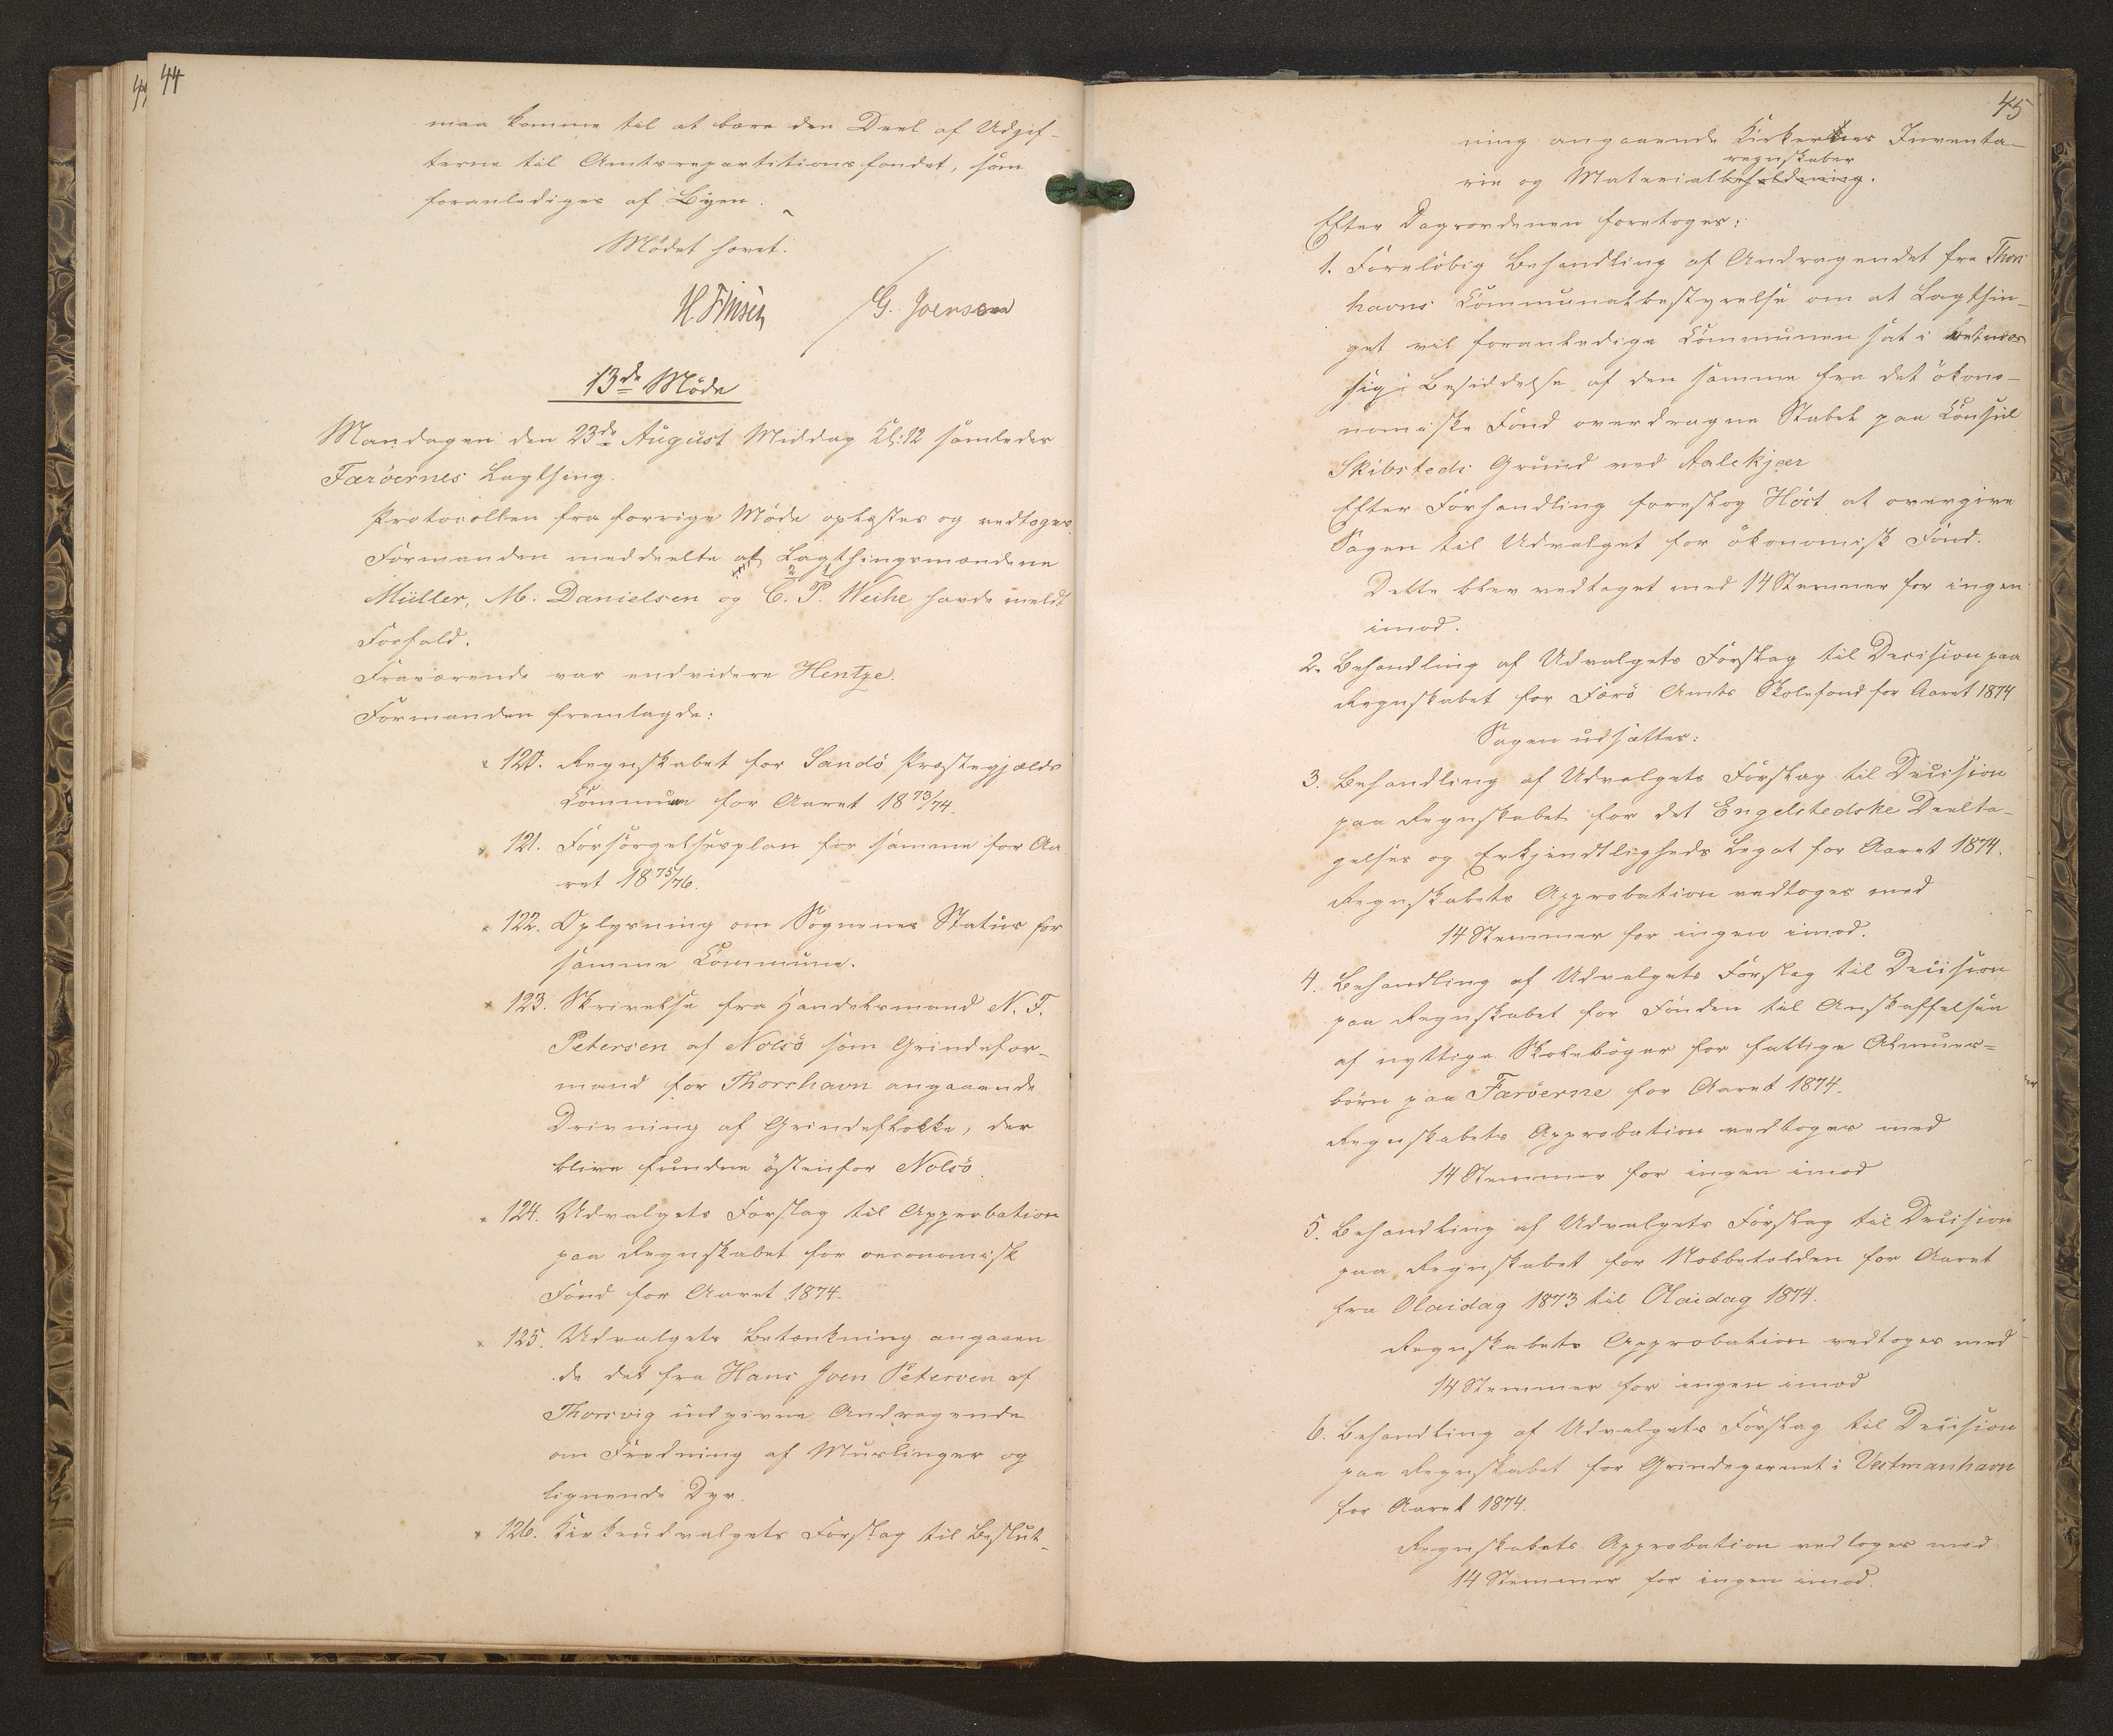 44
maa komme til at bære den Deel af Udgif-
terne til Amtsrepartitionsfondet, som
foranlediges af Byen.
Mödet hævet.
H Finsen G. Joensen
13de Möde
Mandagen den 23de August Middag Kl: 12 samledes
Færöernes Lagthing.
Protocollen fra forrige Möde oplæstes og vedtoges.
Formanden meddeelte at Lagthingsmændene
2 1
Müller, M. Danielsen og C. P. Weihe havde meldt
Forfald.
Fraværende var endvidere Hentze.
Formanden fremlagde:
120. Regnskabet for Sandö Præstegjælds
Commune for Aaret 1873/74.
121. Forsörgelsesplan for samme for Aa
ret 1875/76.
122. Oplysning om Sognenes Status for
samme Commune.
123. Skrivelse fra Handelsmand N. F.
Petersen af Nolsö som Grindefor-
mand for Thorshavn angaaende
Drivning af Grindeflokke, der
blive fundne östenfor Nolsö.
124. Udvalgets Forslag til Approbation
paa Regnskabet for oeconomisk
Fond for Aaret 1874.
125. Udvalgets Betænkning angaaen
de det fra Hans Joen Petersen af
Thorsvig indgivne Andragende
om Fredning af Muslinger og
lignende Dyr.
126. Kirkeudvalgets Forslag til Beslut-
45
ning angaaende Kirkernes Inventa-
regnskaber
rie og Materialbeholdning.
Efter Dagsordenen foretoges:
1. Foreløbig Behandling af Andragendet fra Thors
havns Communalbestyrelse om at Lagthin-
get vil foranledige Communen sat i
sig i Besiddelse af den samme fra det ökono-
nomiske Fond overdragne Stabel paa Consul
Skibsteds Grund ved Aalekjær
Efter Forhandling foreslog Höst at overgive
Sagen til Udvalget for ökonomisk Fond.
Dette blev vedtaget med 14 Stemmer for ingen
imod.
2. Behandling af Udvalgets Forslag til Decision paa
Regnskabet for Færö Amts Skolefond for Aaret 1874
Sagen udsættes:
3. Behandling af Udvalgets Forslag til Decision
paa Regnskabet for det Engelstedske Deelta-
gelses og Erkjendtligheds Legat for Aaret 1874.
Regnskabets Approbation vedtoges med
14 Stemmer for ingen imod.
4. Behandling af Udvalgets Forslag til Decision
paa Regnskabet for Fonden til Anskaffelsen
af nyttige Skolebøger for fattige Almues=
börn paa Færöerne for Aaret 1874.
Regnskabets Approbation vedtoges med
14 Stemmer for ingen imod
5. Behandling af Udvalgets Forslag til Decision
paa Regnskabet for Nobbetolden for Aaret
fra Olaidag 1873 til Olaidag 1874.
Regnskabets Approbation vedtoges med
14 Stemmer for ingen imod
6. Behandling af Udvalgets Forslag til Decision
paa Regnskabet for Grindegarnet i Vestmanhavn
for Aaret 1874.
Regnskabets Approbation vedtoges med
14 Stemmer for ingen imod.